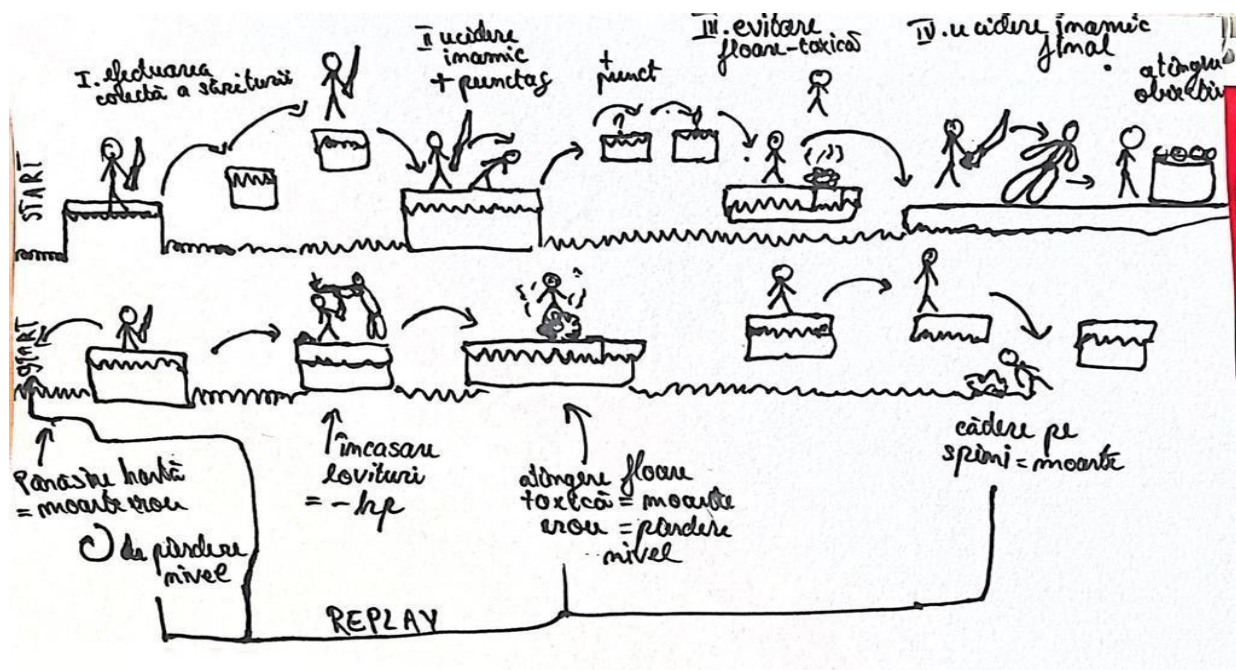 START
I. efectuarea
corectă a săriturii
II ucidere
inamic
+ punctaj
+
punct
III. evitare
floare-toxică
IV. ucidere inamic
final
atingere
obiectiv
START
Părăsire hartă
= moarte erou
de pierdere
nivel
încasare
lovituri
= - hp
atingere floare
toxică = moarte
erou = pierdere
nivel
cădere pe
spini = moarte
REPLAY